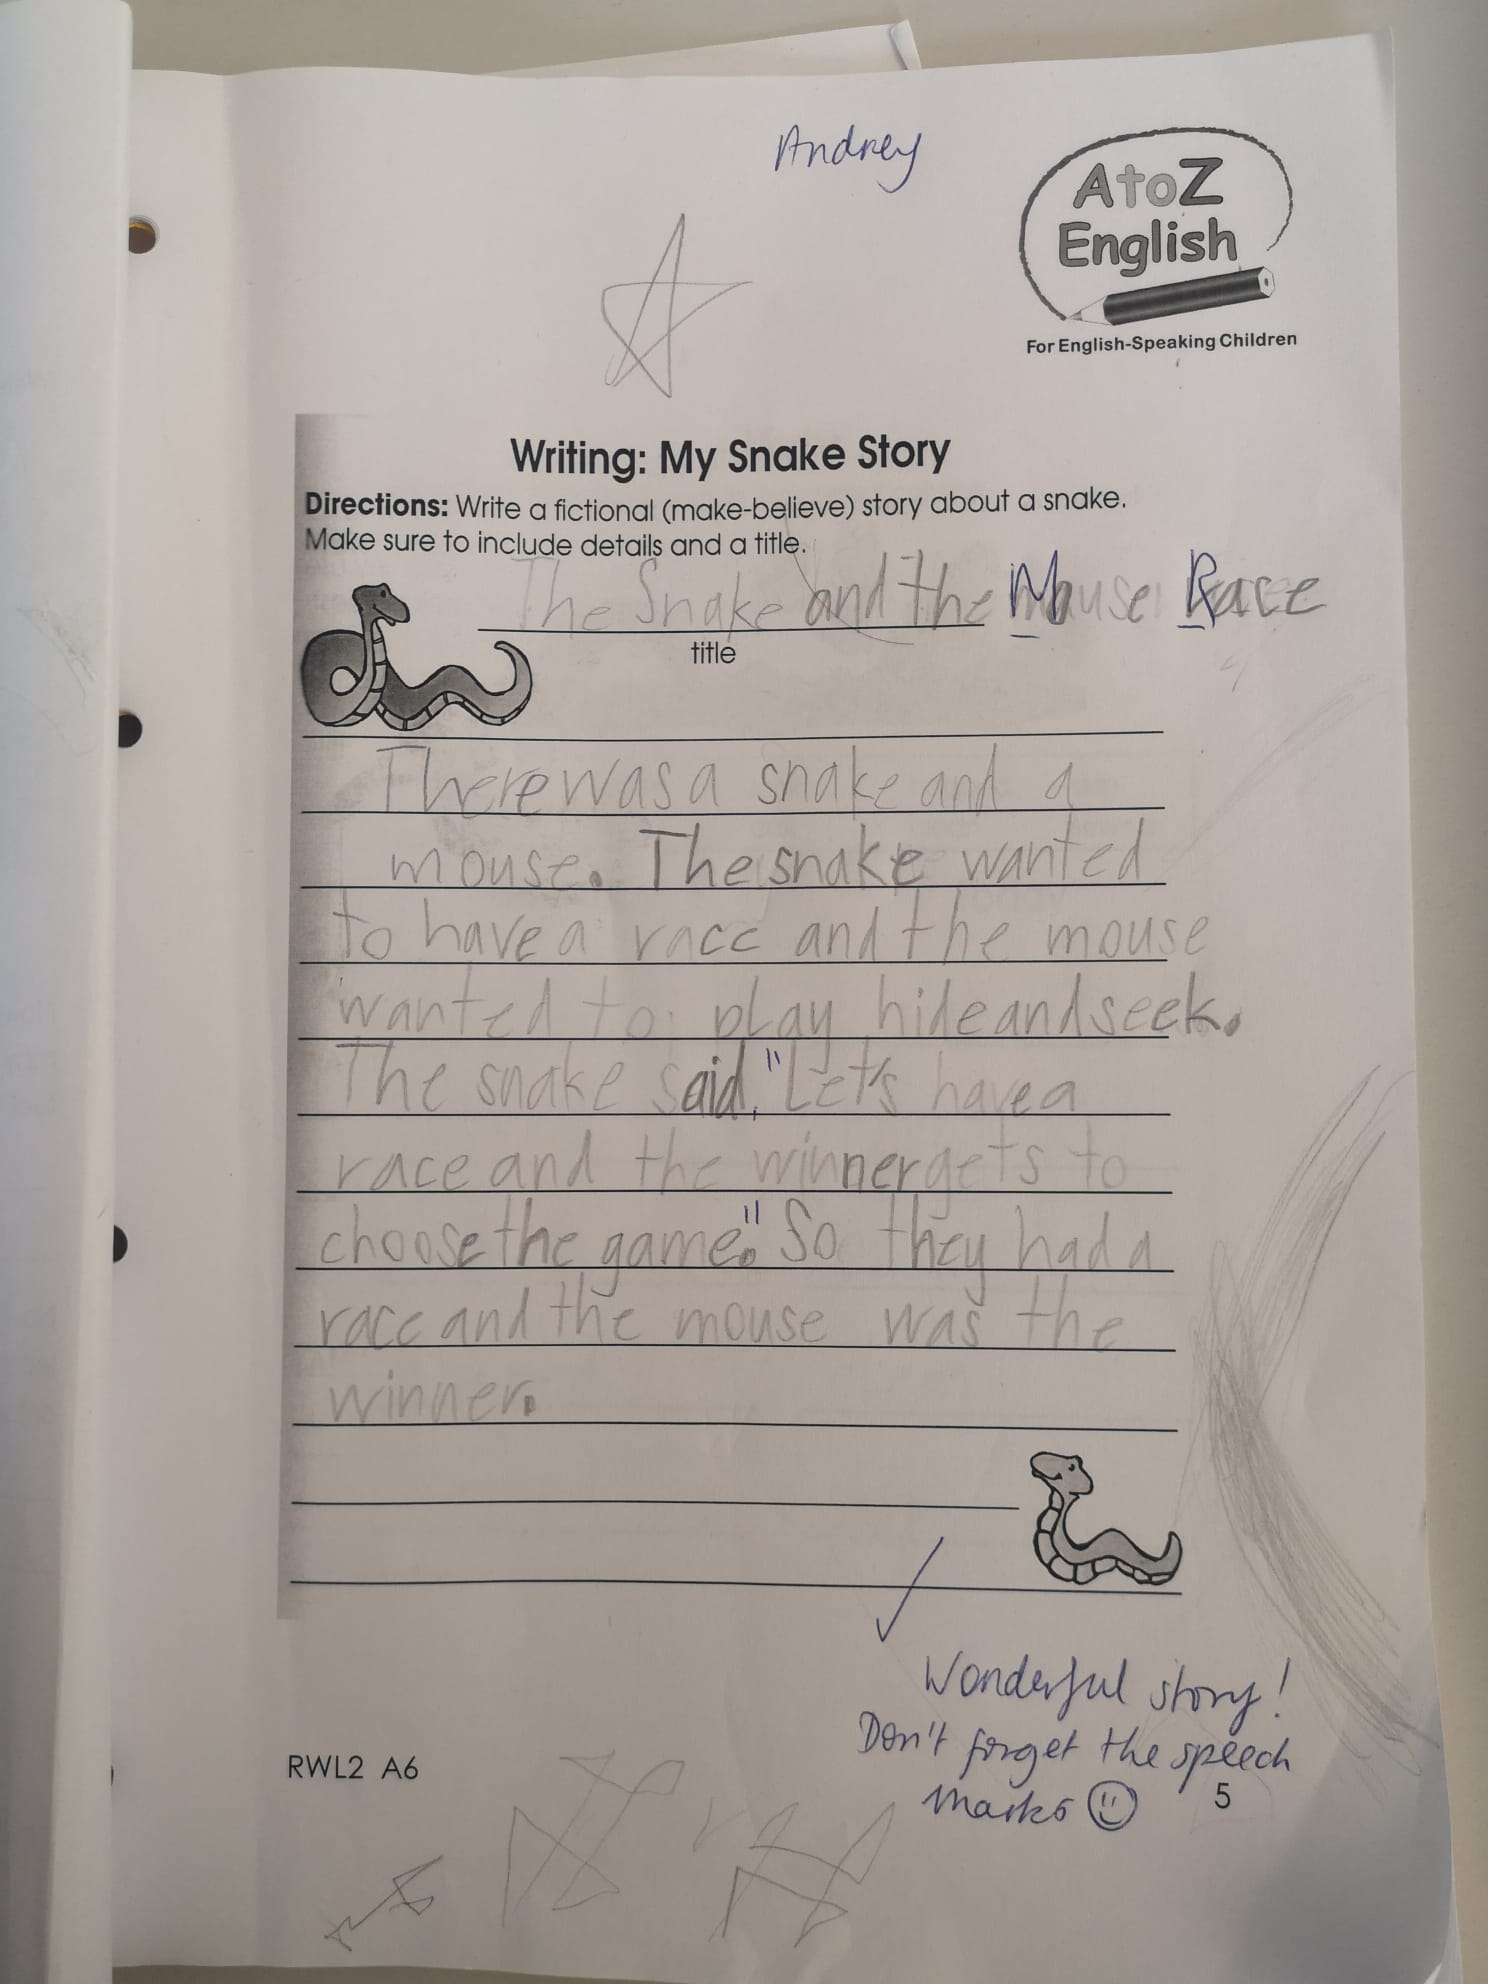 Andrey
A to Z
English
For English-Speaking Children
Writing: My Snake Story
Directions: Write a fictional (make-believe) story about a snake.
Make sure to include details and a title.
The Snake and the Mouse Race
title
There was a snake and a
mouse. The snake wanted
to have a race and the mouse
wanted to play hide and seek.
The snake said, "Let's have a
race and the winner gets to
choose the game." So they had a
race and the mouse was the
winner.
Wonderful story!
Don't forget the speech
marks
RWL2 A6
5